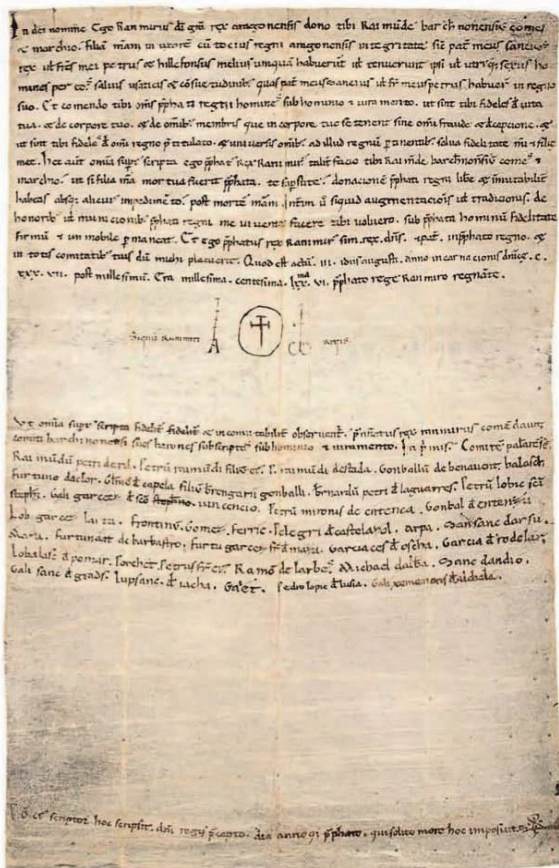 In dei nomine Ego Ranimirus di gra rex aragonensis dono tibi Raimunde barchinonensiu comes
& marchio. filia mam in uxore cu tocius regni aragonensis integritate. sic pat meus sancius
rex ut frs mei petrus & hillefonsus melius umqua habuerut ut tenuerunt ipsi ut utriq sexus ho
mines per eos saluis usaticis & csuetudinib quas pat meus sancius ut fr meus petrus habuert in regno
suo. Et comendo tibi oms pphati regni homines sub hominio & iuramto. ut sint tibi fideles d uita
tua. & de corpore tuo. & de omib membris que in corpore tuo se tenent sine omi fraude & decepcione. &
ut sint tibi fideles d omi regno ptitulato. & uniuersis omib ad illud regnu ptinentib. salua fidelitate mi & filie
mee. Hec aute omia supra scripta ego pphat Rex Ranimir talit facio tibi Raimunde barchinonsiu comes &
marchio. ut si filia ma mortua fuerit pphata. te supstite. donacione pphati regni libe & inmutabilit
habeas absq alicui impedimento. post morte mam. Interim u siquid augmentacionis ut tradicionis. de
honorib ut municionib pphati regni me uiuente facere tibi uoluero. sub pphata hominu fidelitate
firmu & inmobile pmaneat. Et ego pphatus rex Ranimir sim. rex. dns. & pat. in pphato regno. &
in totis comitatib tuis du michi placuerit. Quod est actu. iii. idus augusti. anno incarnacionis dnice. c.
xxx. vii. post millesimu. Era millesima. centesima. lxx ma v. pphato rege Ranimiro regnate.
Signu Ranimiri regis.
Ut omia supra scripta fidelit & incomutabilit obseruent. pnnatus rex ranimirus comdauit
comiti barchinonensi suos barones subscriptos sub hominio & iuramento. In pmis. Comite palarese.
Raimudu petri deril. Petru raimudi filiu ei. P. raimudi destada. Gonballu de benauent. balasch
furtuno daclor. Gliem d capela. filiu brengarii gonballi. Brnardu petri d laguarres. Petru lobic sci
stephi. Gali garcez d sco uincencio. Petru mironis de entenca. Gonbal d entenza
Lob garcez. Frontinu. Gomez. Ferric. Pelegri d castelazol. Arpa. Sansanc darsu.
Maza. Furtundat de barbastro. furtu garcez fr d maza. Garcia ces d oscha. Garcia d rodelar.
d pomar. Porchet. Petrus fr ei. Ramo de larbes. Michael dalba. Sanc dandio.
Gali sanc d grads. Lupsanc. d iacha. Galet. Pedro lopic d lusia. Gali xemenonis
scriptor hoc scripsit. dni regis pcepto. die anno qi pphato. qui solito more hoc imposuit